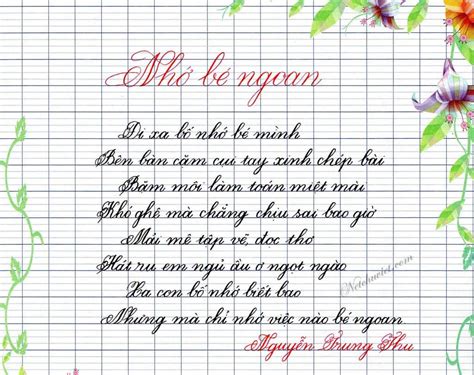 Nhớ bé ngoan
Đi xa bố nhớ bé mình
Bên bàn cặm cụi tay xinh chép bài
Bặm môi làm toán miệt mài
Khó ghê mà chẳng chịu sai bao giờ
Mải mê tập vẽ, đọc thơ
Hát ru em ngủ ầu ơ ngọt ngào
Xa con bố nhớ biết bao
Nhưng mà chỉ nhớ việc nào bé ngoan
Nguyễn Trung Thu
Netchuviet.com